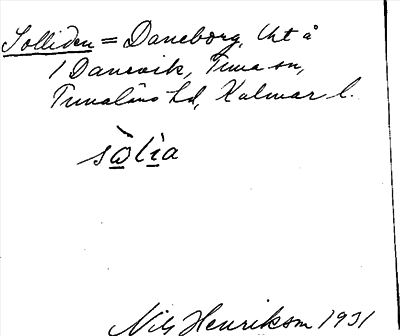 Solliden = Daneborg, Uht å
1 Danevik, Tuna sn,
Tunaläns hd, Kalmar l.
sòlia
Nils Henrikson 1931